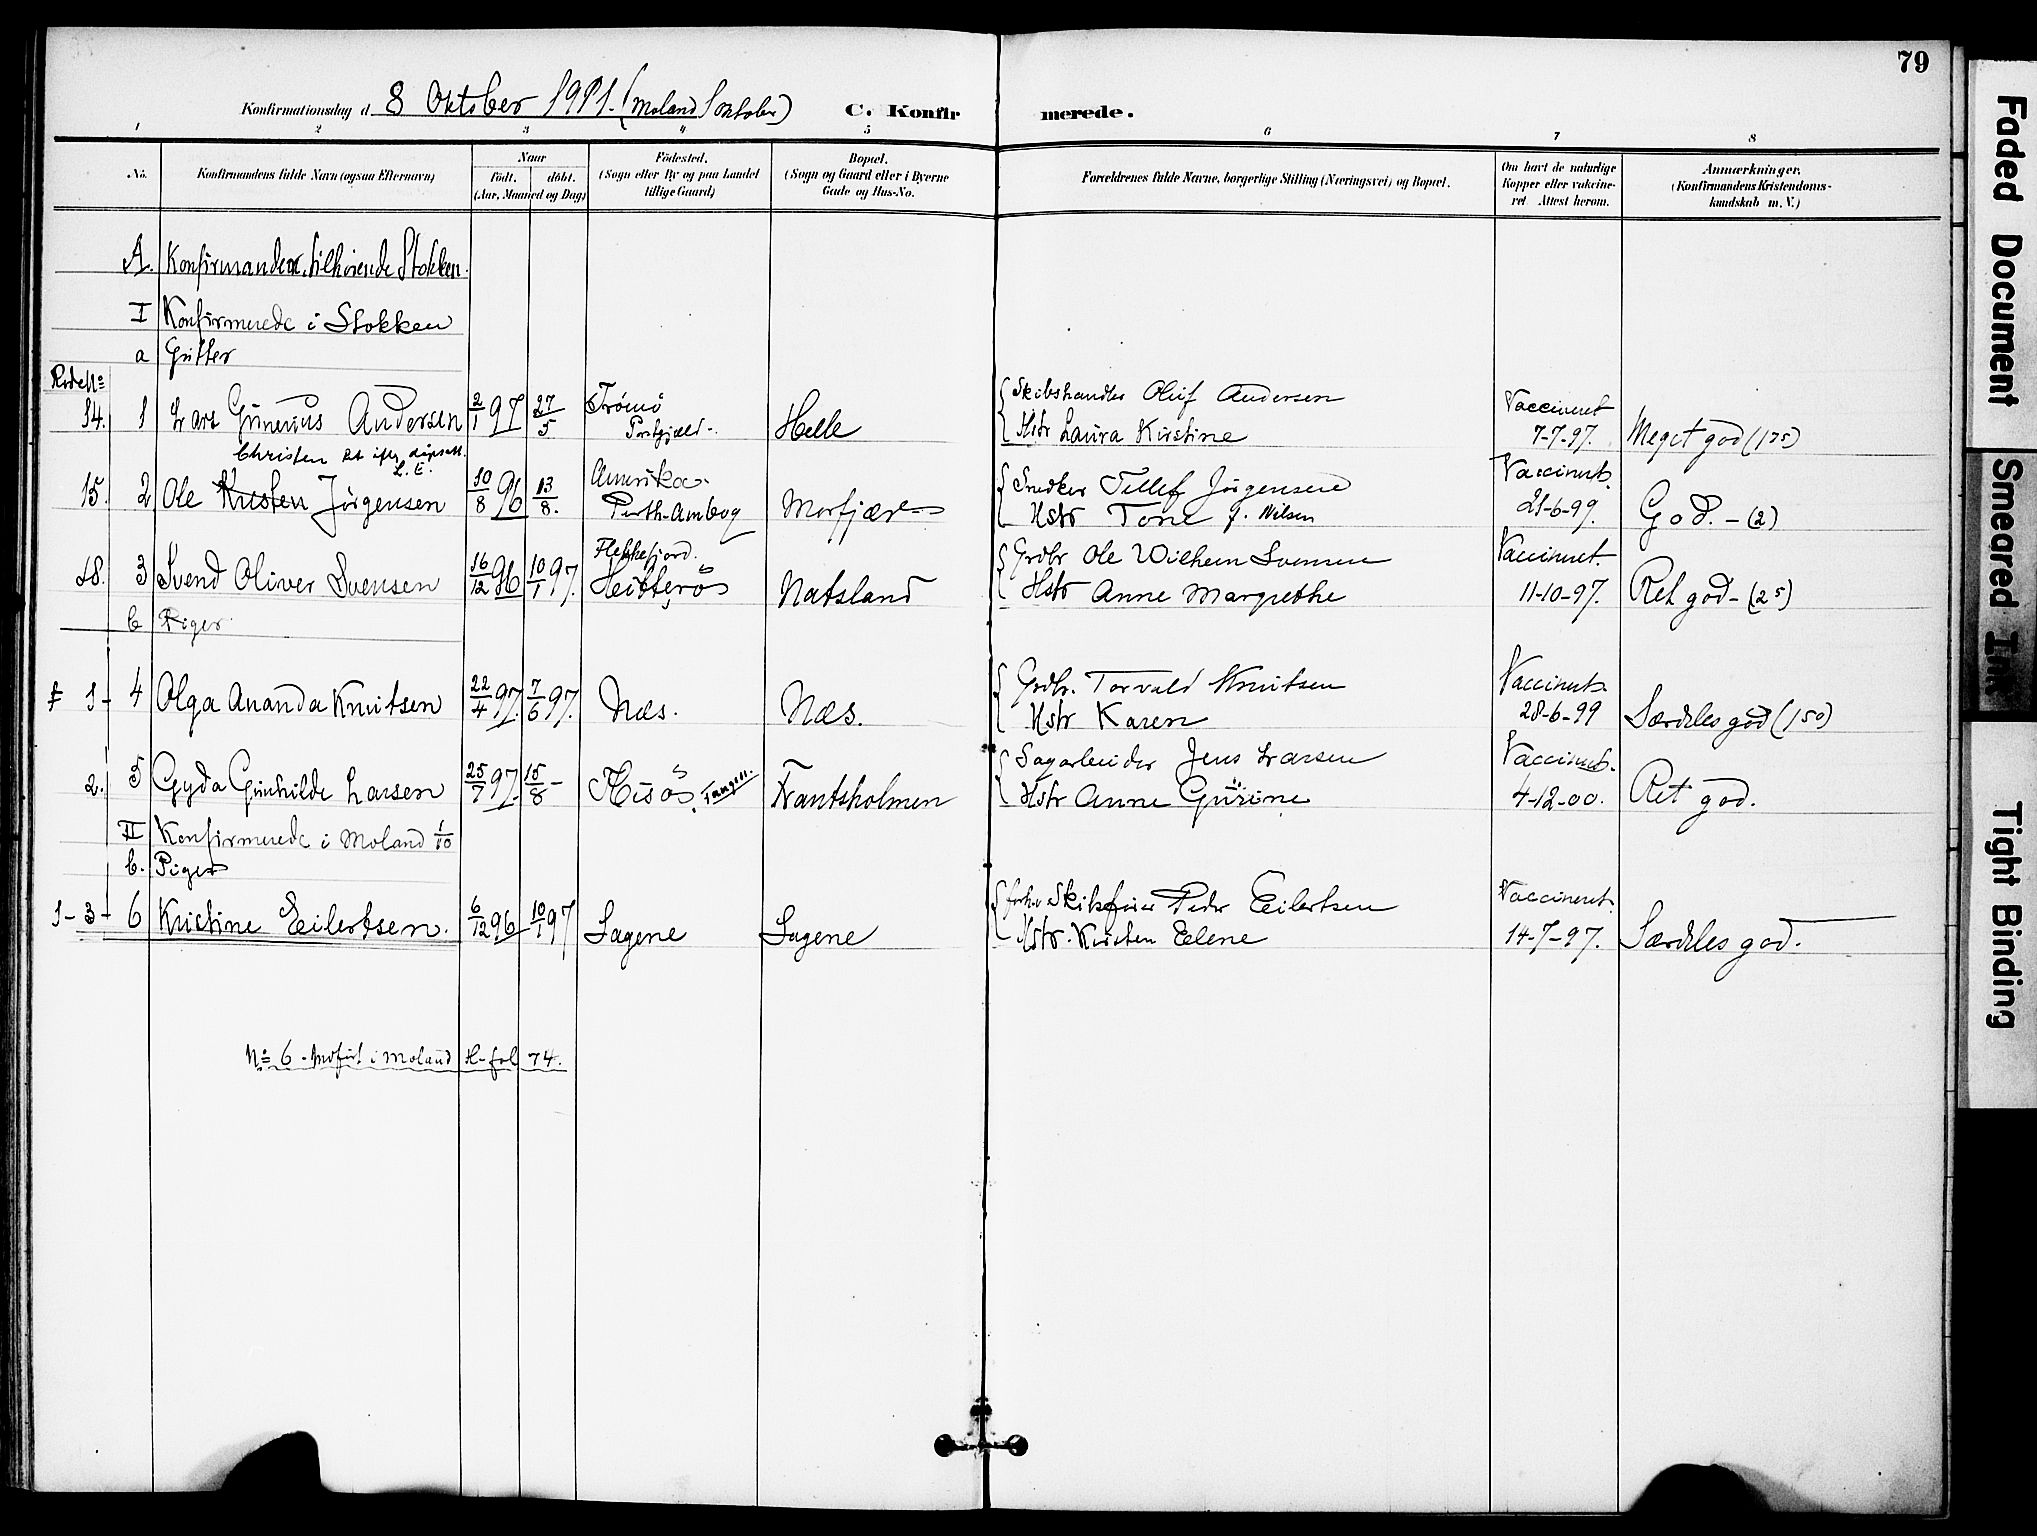 79
Konfirmationsdag d. 8 Oktober 1911. (Moland 1 Oktober) C. Konfirmerede.
1 2 3 4 5 6 7 8
No. Konfirmandens fulde Navn (ogsaa Efternavn)
Naar
født. døbt.
(Aar, Maaned og Dag)
Fødested.
(Sogn eller By og paa Landet
tillige Gaard)
Bopæl.
(Sogn og Gaard eller i Byerne
Gade og Hus-No.
Forældrenes fulde Navne, borgerlige Stilling (Næringsvei) og Bopæl.
Om havt de naturlige
Kopper eller vakcine-
ret Attest herom.
Anmærkninger.
(Konfirmandens Kristendoms-
kundskab m. V.)
A. Konfirmander tilhørende Stokken.
I Konfirmerede i Stokken
a Gutter
14. 1 Lars Gunerius Andersen 2/1 97 27/5 Tromø Helle
Skibshandler Oluf Andersen
Hstr Laura Kirstine
Vaccineret
7-7-97. Meget god (175)
Christen
L. E.
15. 2 Ole Kristen Jørgensen 10/8 96 13/8. Amerika. Perth-Amboy Morfjær
Snedker Tellef Jørgensen
Hstr Tone f. Nilsen
Vaccineret.
21-6-99. God. - (2)
18. 3 Svend Oliver Svensen 16/12 96 10/1 97. Flekkefjord. Heitterø Natsland
Grdbr Ole Wilhelm Svensen
Hstr Anne Margrethe
Vaccineret.
11-10-97. Ret god - (25)
b Piger
1 - 4 Olga Ananda Knutsen 22/4 97. 7/6 97. Næs. Næs.
Grdbr. Torvald Knutsen
Hstr Karen
Vaccineret.
28-6-99 Særdeles god (150)
2. 5 Gyda Gunhilde Larsen 25/7 97. 15/8 - Hisø. Tangen. Frantsholmen
Sagarbeider Jens Larsen
Hstr Anne Gurine
Vaccineret.
4-12-00. Ret god.
II Konfirmerede i Moland 1/10
b. Piger
1-3- 6 Kristine Eilertsen. 6/12 96 10/1 97 Sagene Sagene
Peder Eilertsen
Hstr. Kirsten Elene
Vaccineret.
14-7-97. Særdeles god.
No 6 - i Moland fol 74.
Faded Document Smeared Ink Tight Binding